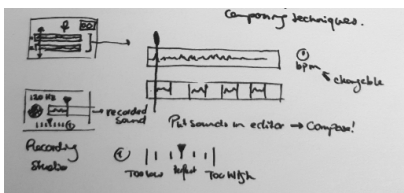 Composing techniques.
bpm
changable
120 Hz
recorded
sound
Put sounds in editor → Compose!
Recording
Studio
Too low
Too High